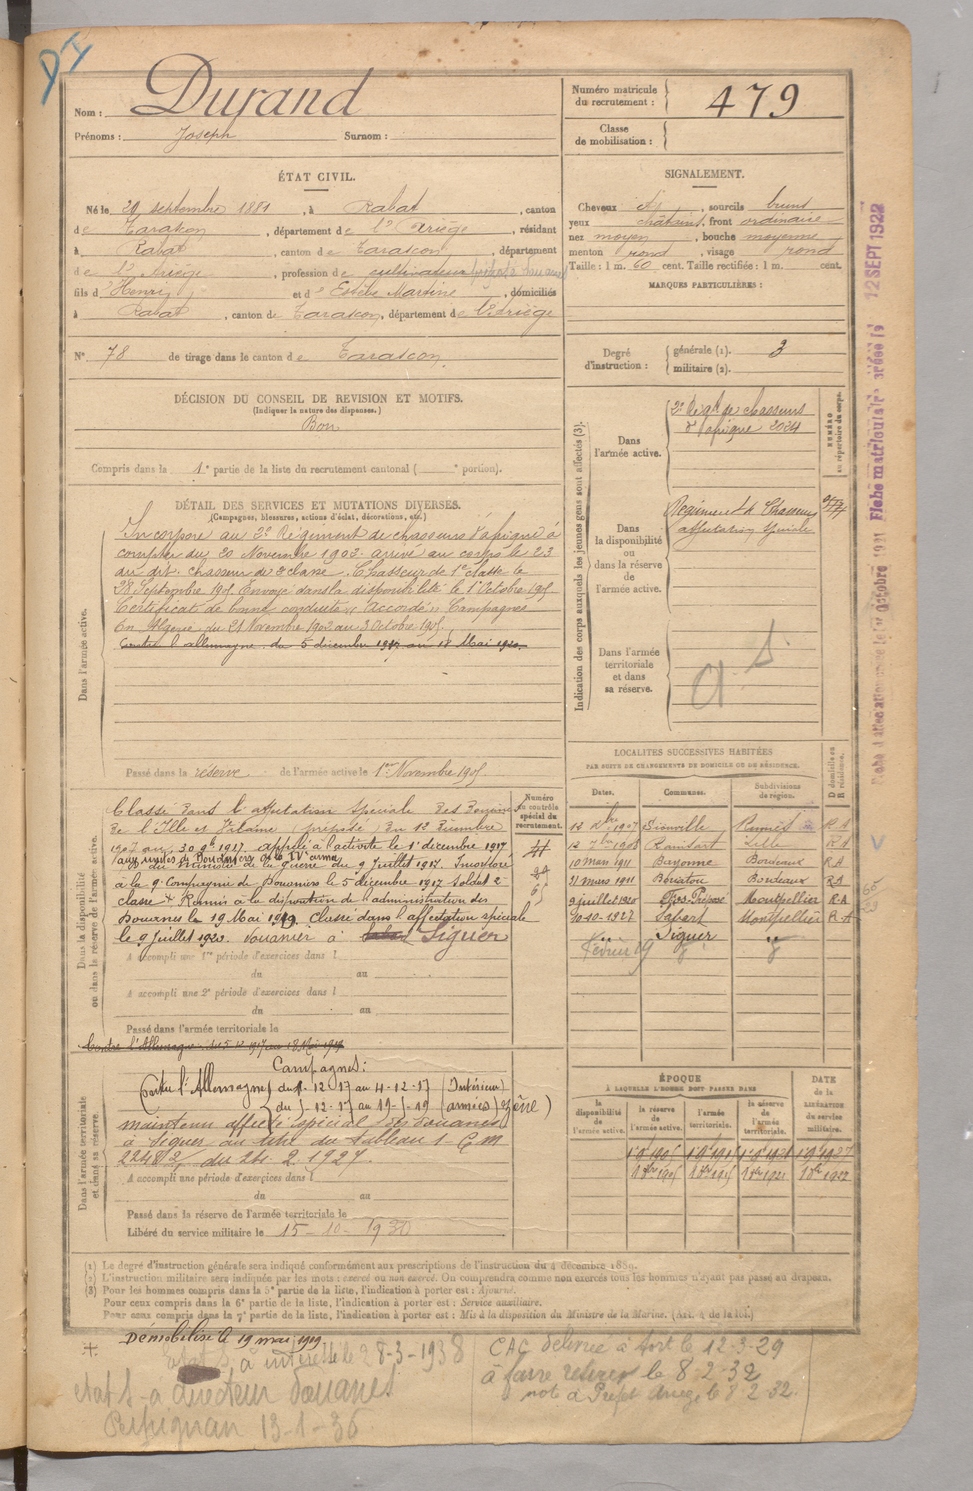 Nom : Durand
Prénoms : Joseph Surnom :
Numéro matricule
du recrutement : 479
Classe
de mobilisation :
ÉTAT CIVIL.
Né le 29 septembre 1881, à Rabat, canton
de Tarascon, département de l'Ariège, résidant
à Rabat, canton de Tarascon, département
de l'Ariège, profession de cultivateur
fils d'Henri et d'Estèbe Martine, domiciliés
à Rabat, canton de Tarascon, département de l'Ariège
N° 78 de tirage dans le canton de Tarascon
DÉCISION DU CONSEIL DE REVISION ET MOTIFS.
(Indiquer la nature des dispenses.)
Bon
Compris dans la 1e partie de la liste du recrutement cantonal ( e portion).
SIGNALEMENT.
Cheveux, sourcils bruns
yeux chatains, front ordinaire
nez moyen, bouche moyenne
menton rond, visage rond
Taille : 1 m. 60 cent. Taille rectifiée : 1 m. cent.
MARQUES PARTICULIÈRES :
Degré
d'instruction :
générale (1). 3
militaire (2).
DÉTAIL DES SERVICES ET MUTATIONS DIVERSES.
(Campagnes, blessures, actions d'éclat, décorations, etc.)
Dans l'armée active.
Incorporé au 2e Régiment de chasseurs d'afrique à
compter du 20 Novembre 1902 arrivé au corps le 23
du dit. chasseur de 2e classe. Chasseur de 1e classe le
28 Septembre 1905. Envoyé dans la disponibilité le 1er Octobre 1905
Certificat de bonne conduite "Accordé" Campagnes
En Algérie du 21 Novembre 1902 au 3 Octobre 1905.
Contre l'allemagne du 5 décembre 1917 au 18 Mai 1920
Passé dans la réserve de l'armée active le 1er Novembre 1905.
Indication des corps auxquels les jeunes gens sont affectés (3).
Dans
l'armée active.
2e Régt de chasseurs
d'afrique 2024
NUMÉRO
au répertoire du corps.
Dans
la disponibilité
ou
dans la réserve
de
l'armée active.
Régiment de Chasseurs
affectation spéciale
Dans l'armée
territoriale
et dans
sa réserve.
LOCALITES SUCCESSIVES HABITÉES
PAR SUITE DE CHANGEMENTS DE DOMICILE OU DE RÉSIDENCE.
Dates. Communes. Subdivisions
de région.
D domicile ou
R résidence.
Rennes R A
Lille R A
10 mars 1911 Bayonne Bordeaux R A
21 mars 1911 Biriatou Bordeaux R A
9 juillet 1920 Montpellier R A
20-10-1927 Sabart Montpellier R A
Siguer "
Dans la disponibilité
ou dans la réserve de l'armée active.
Numéro
au contrôle
spécial du
recrutement.
Classé dans l'affectation spéciale des Douanes
de l'Ille et Vilaine (préposé) du 12 Décembre
1907 au 30 9bre 1917. appelé à l'activité le 1er décembre 1917
du Ministre de la Guerre du 9 Juillet 1917. Incorporé
à la 9e Compagnie de Douaniers le 5 décembre 1917 soldat 2e
classe + Remis à la disposition de l'administration des
Douanes le 19 Mai 1919. Classé dans l'affectation spéciale
le 9 Juillet 1920. Douanier à Siguer
A accompli une 1re période d'exercices dans l
du au
A accompli une 2e période d'exercices dans l
du au
Passé dans l'armée territoriale le
Contre l'Allemagne du 5-12-1917 au 18 Mai 1919
Dans l'armée territoriale
et dans sa réserve.
Campagnes :
Contre l'Allemagne du 1-12-17 au 4-12-17 (Intérieur)
du 5-12-17 au 19-5-19 (armées)
maintenu affecté spécial des douanes
à Siguer au titre du tableau 1 C.M
2248 2/ du 24.2.1927.
A accompli une période d'exercices dans l
du au
Passé dans la réserve de l'armée territoriale le
Libéré du service militaire le 15-10-1930
ÉPOQUE
À LAQUELLE L'HOMME DOIT PASSER DANS
DATE
de la
LIBÉRATION
du service
militaire.
la
disponibilité
de
l'armée active.
la réserve
de
l'armée active.
l'armée
territoriale.
la réserve
de
l'armée
territoriale.
(1) Le degré d'instruction générale sera indiqué conformément aux prescriptions de l'instruction du 4 décembre 1889.
(2) L'instruction militaire sera indiquée par les mots : exercé ou non exercé. On comprendra comme non exercés tous les hommes n'ayant pas passé au drapeau.
(3) Pour les hommes compris dans la 5e partie de la liste, l'indication à porter est : Ajourné.
Pour ceux compris dans la 6e partie de la liste, l'indication à porter est : Service auxiliaire.
Pour ceux compris dans la 7e partie de la liste, l'indication à porter est : Mis à la disposition du Ministre de la Marine. (Art. 4 de la loi.)
+ Démobilisé le 19 mai 1919
Etat S. à intéressé le 28-3-1938
etat S - a directeur douanes
Perpignan 13-1-36
CAC délivrée à Sort le 12-3-29
à faire retirer le 8-2-32
not à Préfet Arieg. le 8-2-32.
Fiche matriculaire créée le 12 SEPT 1922